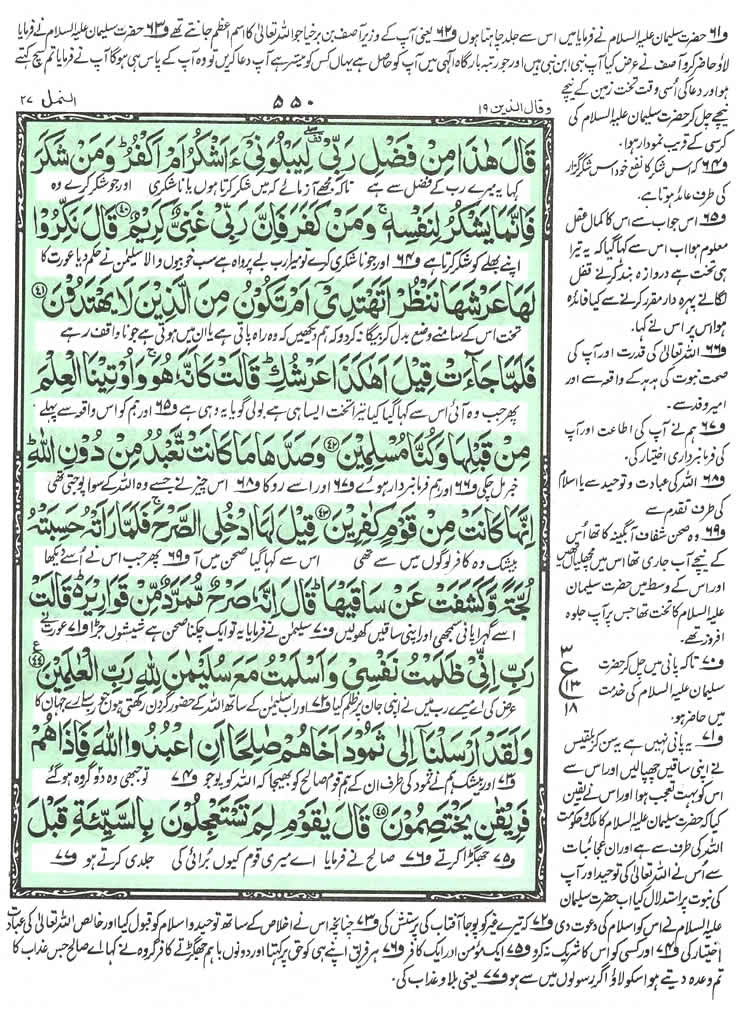 و۶۱ حضرت سلیمان علیہ السلام نے فرمایا میں اس سے جلد چاہتا ہوں و۶۲ یعنی آپ کے وزیر آصف بن برخیا جو اللہ تعالیٰ کا اسم اعظم جانتے تھے و۶۳ حضرت سلیمان علیہ السلام نے فرمایا
لاؤ حاضر کرو آصف نے عرض کیا آپ نبی ابن نبی ہیں اور جو رتبہ بارگاہ الٰہی میں آپ کو حاصل ہے یہاں کس کو میسر ہے آپ دعا کریں تو وہ آپ کے پاس ہی ہوگا آپ نے فرمایا تم سچ کہتے
ہو اور دعا کی اُسی وقت تخت زمین کے نیچے
نیچے چل کر حضرت سلیمان علیہ السلام کی
کرسی کے قریب نمودار ہوا۔
و۶۴ کہ اس شکر کا نفع خود اس شکر گزار
کی طرف عائد ہوتا ہے۔
و۶۵ اس جواب سے اس کا کمال عقل
معلوم ہوا اب اس سے کہا گیا کہ یہ تیرا
ہی تخت ہے دروازہ بند کرنے قفل
لگانے پہرہ دار مقرر کرنے سے کیا فائدہ
ہوا اس پر اس نے کہا۔
و۶۶ اللہ تعالیٰ کی قدرت اور آپ کی
صحت نبوت کی ہدہد کے واقعہ سے اور
امیر وفد سے۔
و۶۷ ہم نے آپ کی اطاعت اور آپ
کی فرمانبرداری اختیار کی۔
و۶۸ اللہ کی عبادت و توحید سے یا اسلام
کی طرف تقدم سے
و۶۹ وہ صحن شفاف آبگینہ کا تھا اُس
کے نیچے آب جاری تھا اس میں مچھلیاں تھیں
اور اس کے وسط میں حضرت سلیمان
علیہ السلام کا تخت تھا جس پر آپ جلوہ
افروز تھے۔
و۷۰ تاکہ پانی میں چل کر حضرت
سلیمان علیہ السلام کی خدمت
میں حاضر ہو۔
و۷۱ یہ پانی نہیں ہے یہ سن کر بلقیس
نے اپنی ساقیں چھپالیں اور اس سے
اس کو بہت تعجب ہوا اور اس نے یقین
کیا کہ حضرت سلیمان علیہ السلام کا ملک و حکومت
اللہ کی طرف سے ہے اور ان عجائبات
سے اُس نے اللہ تعالیٰ کی توحید اور آپ
کی نبوت پر استدلال کیا اب حضرت سلیمان
وقال الذین ۱۹
۵۵۰
النمل ۲۷
قَالَ هٰذَا مِنْ فَضْلِ رَبِّیْ ۫ۖ لِیَبْلُوَنِیْۤ ءَاَشْكُرُ اَمْ اَكْفُرُ ؕ وَمَنْ شَكَرَ
کہا یہ میرے رب کے فضل سے ہے تاکہ مجھے آزمائے کہ میں شکر کرتا ہوں یا ناشکری اور جو شکر کرے وہ
فَاِنَّمَا یَشْكُرُ لِنَفْسِهٖ ۚ وَمَنْ كَفَرَ فَاِنَّ رَبِّیْ غَنِیٌّ كَرِیْمٌ ۴۰ قَالَ نَكِّرُوْا
اپنے بھلے کو شکر کرتا ہے و۶۴ اور جو ناشکری کرے تو میرا رب بے پرواہ ہے سب خوبیوں والا سلیمٰن نے حکم دیا عورت کا
لَهَا عَرْشَهَا نَنْظُرْ اَتَهْتَدِیْۤ اَمْ تَكُوْنُ مِنَ الَّذِیْنَ لَا یَهْتَدُوْنَ ۴۱
تخت اس کے سامنے وضع بدل کر بیگانہ کردو کہ ہم دیکھیں کہ وہ راہ پاتی ہے یا ان میں ہوتی ہے جو ناواقف رہے
فَلَمَّا جَآءَتْ قِیْلَ اَهٰكَذَا عَرْشُكِ ؕ قَالَتْ كَاَنَّهٗ هُوَ ۚ وَاُوْتِیْنَا الْعِلْمَ
پھر جب وہ آئی اس سے کہا گیا کیا تیرا تخت ایسا ہی ہے بولی گویا یہ وہی ہے و۶۵ اور ہم کو اس واقعہ سے پہلے
مِنْ قَبْلِهَا وَكُنَّا مُسْلِمِیْنَ ۴۲ وَصَدَّهَا مَا كَانَتْ تَّعْبُدُ مِنْ دُوْنِ اللّٰهِ ؕ
خبر مل چکی و۶۶ اور ہم فرمانبردار ہوئے و۶۷ اور اسے روکا و۶۸ اس چیز نے جسے وہ اللہ کے سوا پوجتی تھی
اِنَّهَا كَانَتْ مِنْ قَوْمٍ كٰفِرِیْنَ ۴۳ قِیْلَ لَهَا ادْخُلِی الصَّرْحَ ۚ فَلَمَّا رَاَتْهُ حَسِبَتْهُ
بیشک وہ کافر لوگوں میں سے تھی اس سے کہا گیا صحن میں آ و۶۹ پھر جب اس نے اُسے دیکھا
لُجَّةً وَّكَشَفَتْ عَنْ سَاقَیْهَا ؕ قَالَ اِنَّهٗ صَرْحٌ مُّمَرَّدٌ مِّنْ قَوَارِیْرَ ؕ۬ قَالَتْ
اسے گہرا پانی سمجھی اور اپنی ساقیں کھولیں و۷۰ سلیمٰن نے فرمایا یہ تو ایک چکنا صحن ہے شیشوں جڑا و۷۱ عورت نے
رَبِّ اِنِّیْ ظَلَمْتُ نَفْسِیْ وَاَسْلَمْتُ مَعَ سُلَیْمٰنَ لِلّٰهِ رَبِّ الْعٰلَمِیْنَ ۴۴ ع
عرض کی اے میرے رب میں نے اپنی جان پر ظلم کیا و۷۲ اور اب سلیمٰن کے ساتھ اللہ کے حضور گردن رکھتی ہوں جو رب سارے جہان کا
وَلَقَدْ اَرْسَلْنَاۤ اِلٰى ثَمُوْدَ اَخَاهُمْ صٰلِحًا اَنِ اعْبُدُوا اللّٰهَ فَاِذَا هُمْ
و۷۳ اور بیشک ہم نے ثمود کی طرف ان کے ہم قوم صالح کو بھیجا کہ اللہ کو پوجو و۷۴ تو جبھی وہ دو گروہ ہوگئے
فَرِیْقٰنِ یَخْتَصِمُوْنَ ۴۵ قَالَ یٰقَوْمِ لِمَ تَسْتَعْجِلُوْنَ بِالسَّیِّئَةِ قَبْلَ
و۷۵ جھگڑا کرتے و۷۶ صالح نے فرمایا اے میری قوم کیوں بُرائی کی جلدی کرتے ہو و۷۷
۳
ع
۱۳
۱۸
علیہ السلام نے اس کو اسلام کی دعوت دی و۷۲ کہ تیرے غیر کو پوجا آفتاب کی پرستش کی و۷۳ چنانچہ اس نے اخلاص کے ساتھ توحید و اسلام کو قبول کیا اور خالص اللہ تعالیٰ کی عبادت
اختیار کی و۷۴ اور کسی کو اس کا شریک نہ کرو و۷۵ ایک مؤمن اور ایک کافر و۷۶ ہر فریق اپنے ہی کو حق پر کہتا اور دونوں باہم جھگڑتے کافر گروہ نے کہا اے صالح جس عذاب کا
تم وعدہ دیتے ہو اس کو لاؤ اگر رسولوں میں سے ہو و۷۷ یعنی بلا و عذاب کی۔